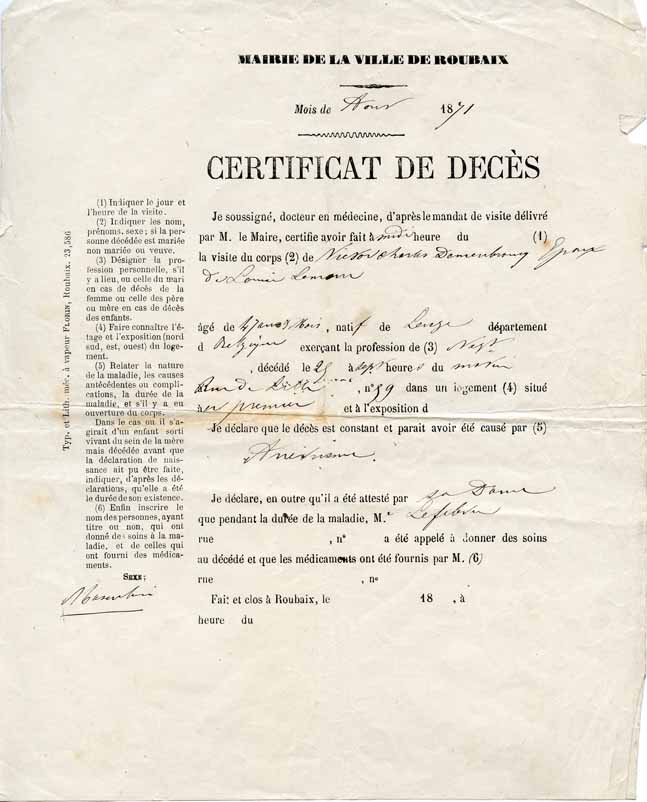 MAIRIE DE LA VILLE DE ROUBAIX
Mois de Aout 1871
CERTIFICAT DE DECÈS
(1) Indiquer le jour et
l'heure de la visite.
(2) Indiquer les nom,
prénoms, sexe; si la per-
sonne décédée est mariée
non mariée ou veuve.
(3) Désigner la pro-
fession personnelle, s'il
y a lieu, ou celle du mari
en cas de décès de la
femme ou celle des père
ou mère en cas de décès
des enfants.
(4) Faire connaître l'é-
tage et l'exposition (nord
sud, est, ouest) du loge-
ment.
(5) Relater la nature
de la maladie, les causes
antécédentes ou compli-
cations, la durée de la
maladie, et s'il y a eu
ouverture du corps.
Dans le cas ou il s'a-
girait d'un enfant sorti
vivant du sein de la mère
mais décédée avant que
la déclaration de nais-
sance ait pu être faite,
indiquer, d'après les dé-
clarations, qu'elle a été
le durée de son existence.
(6) Enfin inscrire le
nom des personnes, ayant
titre ou non, qui ont
donné des soins à la ma-
ladie, et de celles qui
ont fourni des médica-
ments.
SEXE;
Masculin
Typ. et Lith. méc. à vapeur FLORIN, Roubaix. 23,586
Je soussigné, docteur en médecine, d'après le mandat de visite délivré
par M. le Maire, certifie avoir fait à midi heure du (1)
la visite du corps (2) de Victor Charles Epoux
de Louise
âgé de 47 ans 3 mois, natif de Leuze département
d Belgique exerçant la profession de (3) Négt
, décédé le 25 à sept heures du matin
Rue de Lille, n° 59 dans un logement (4) situé
au premier et à l'exposition d
Je déclare que le décès est constant et parait avoir été causé par (5)
Anévrisme.
Je déclare, en outre qu'il a été attesté par sa Dame
que pendant la durée de la maladie, M.r Lefebvre
rue , n° a été appelé à donner des soins
au décédé et que les médicaments ont été fournis par M. (6)
rue , n°
Fait et clos à Roubaix, le 18 , à
heure du